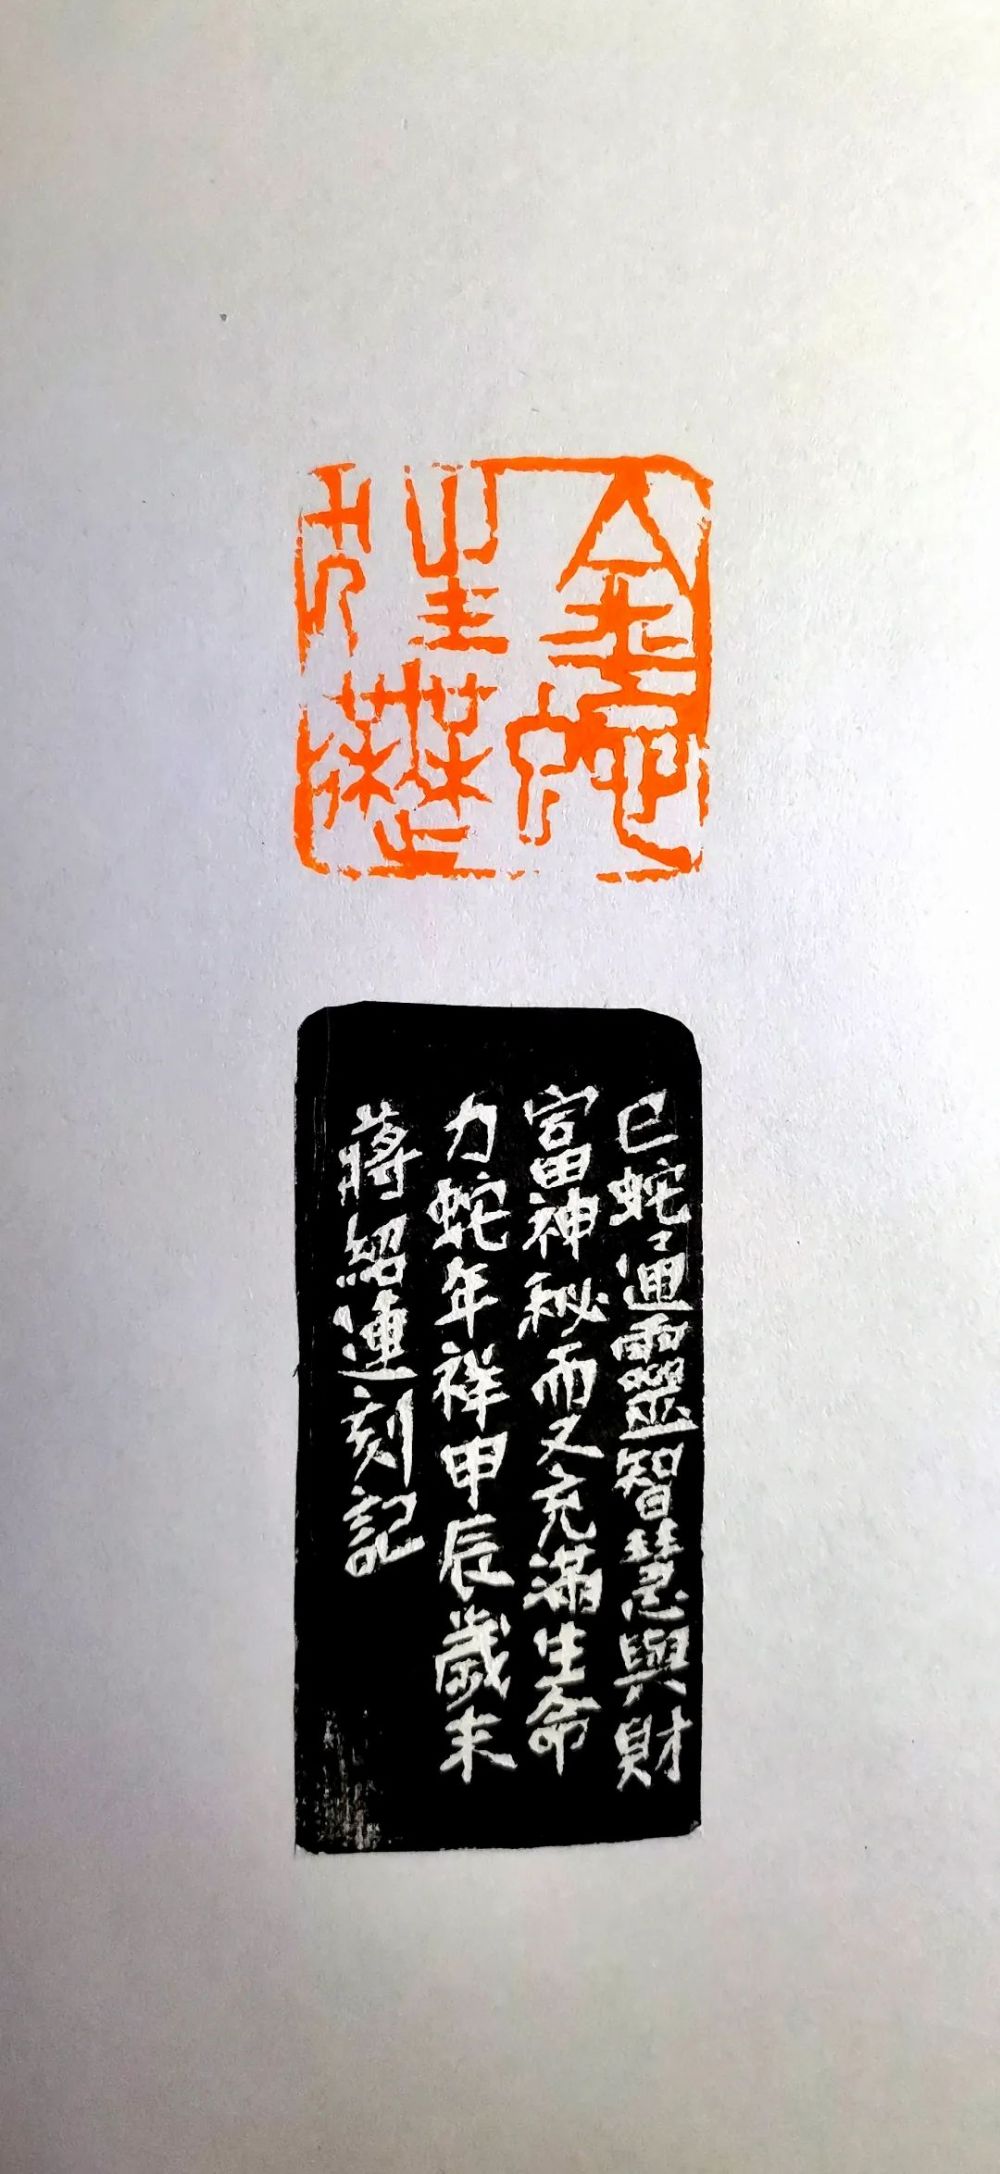 金蛇
狂舞
巳蛇通靈智慧與財
富神秘而又充滿生命
力蛇年祥甲辰歲末
蔣紹連刻記